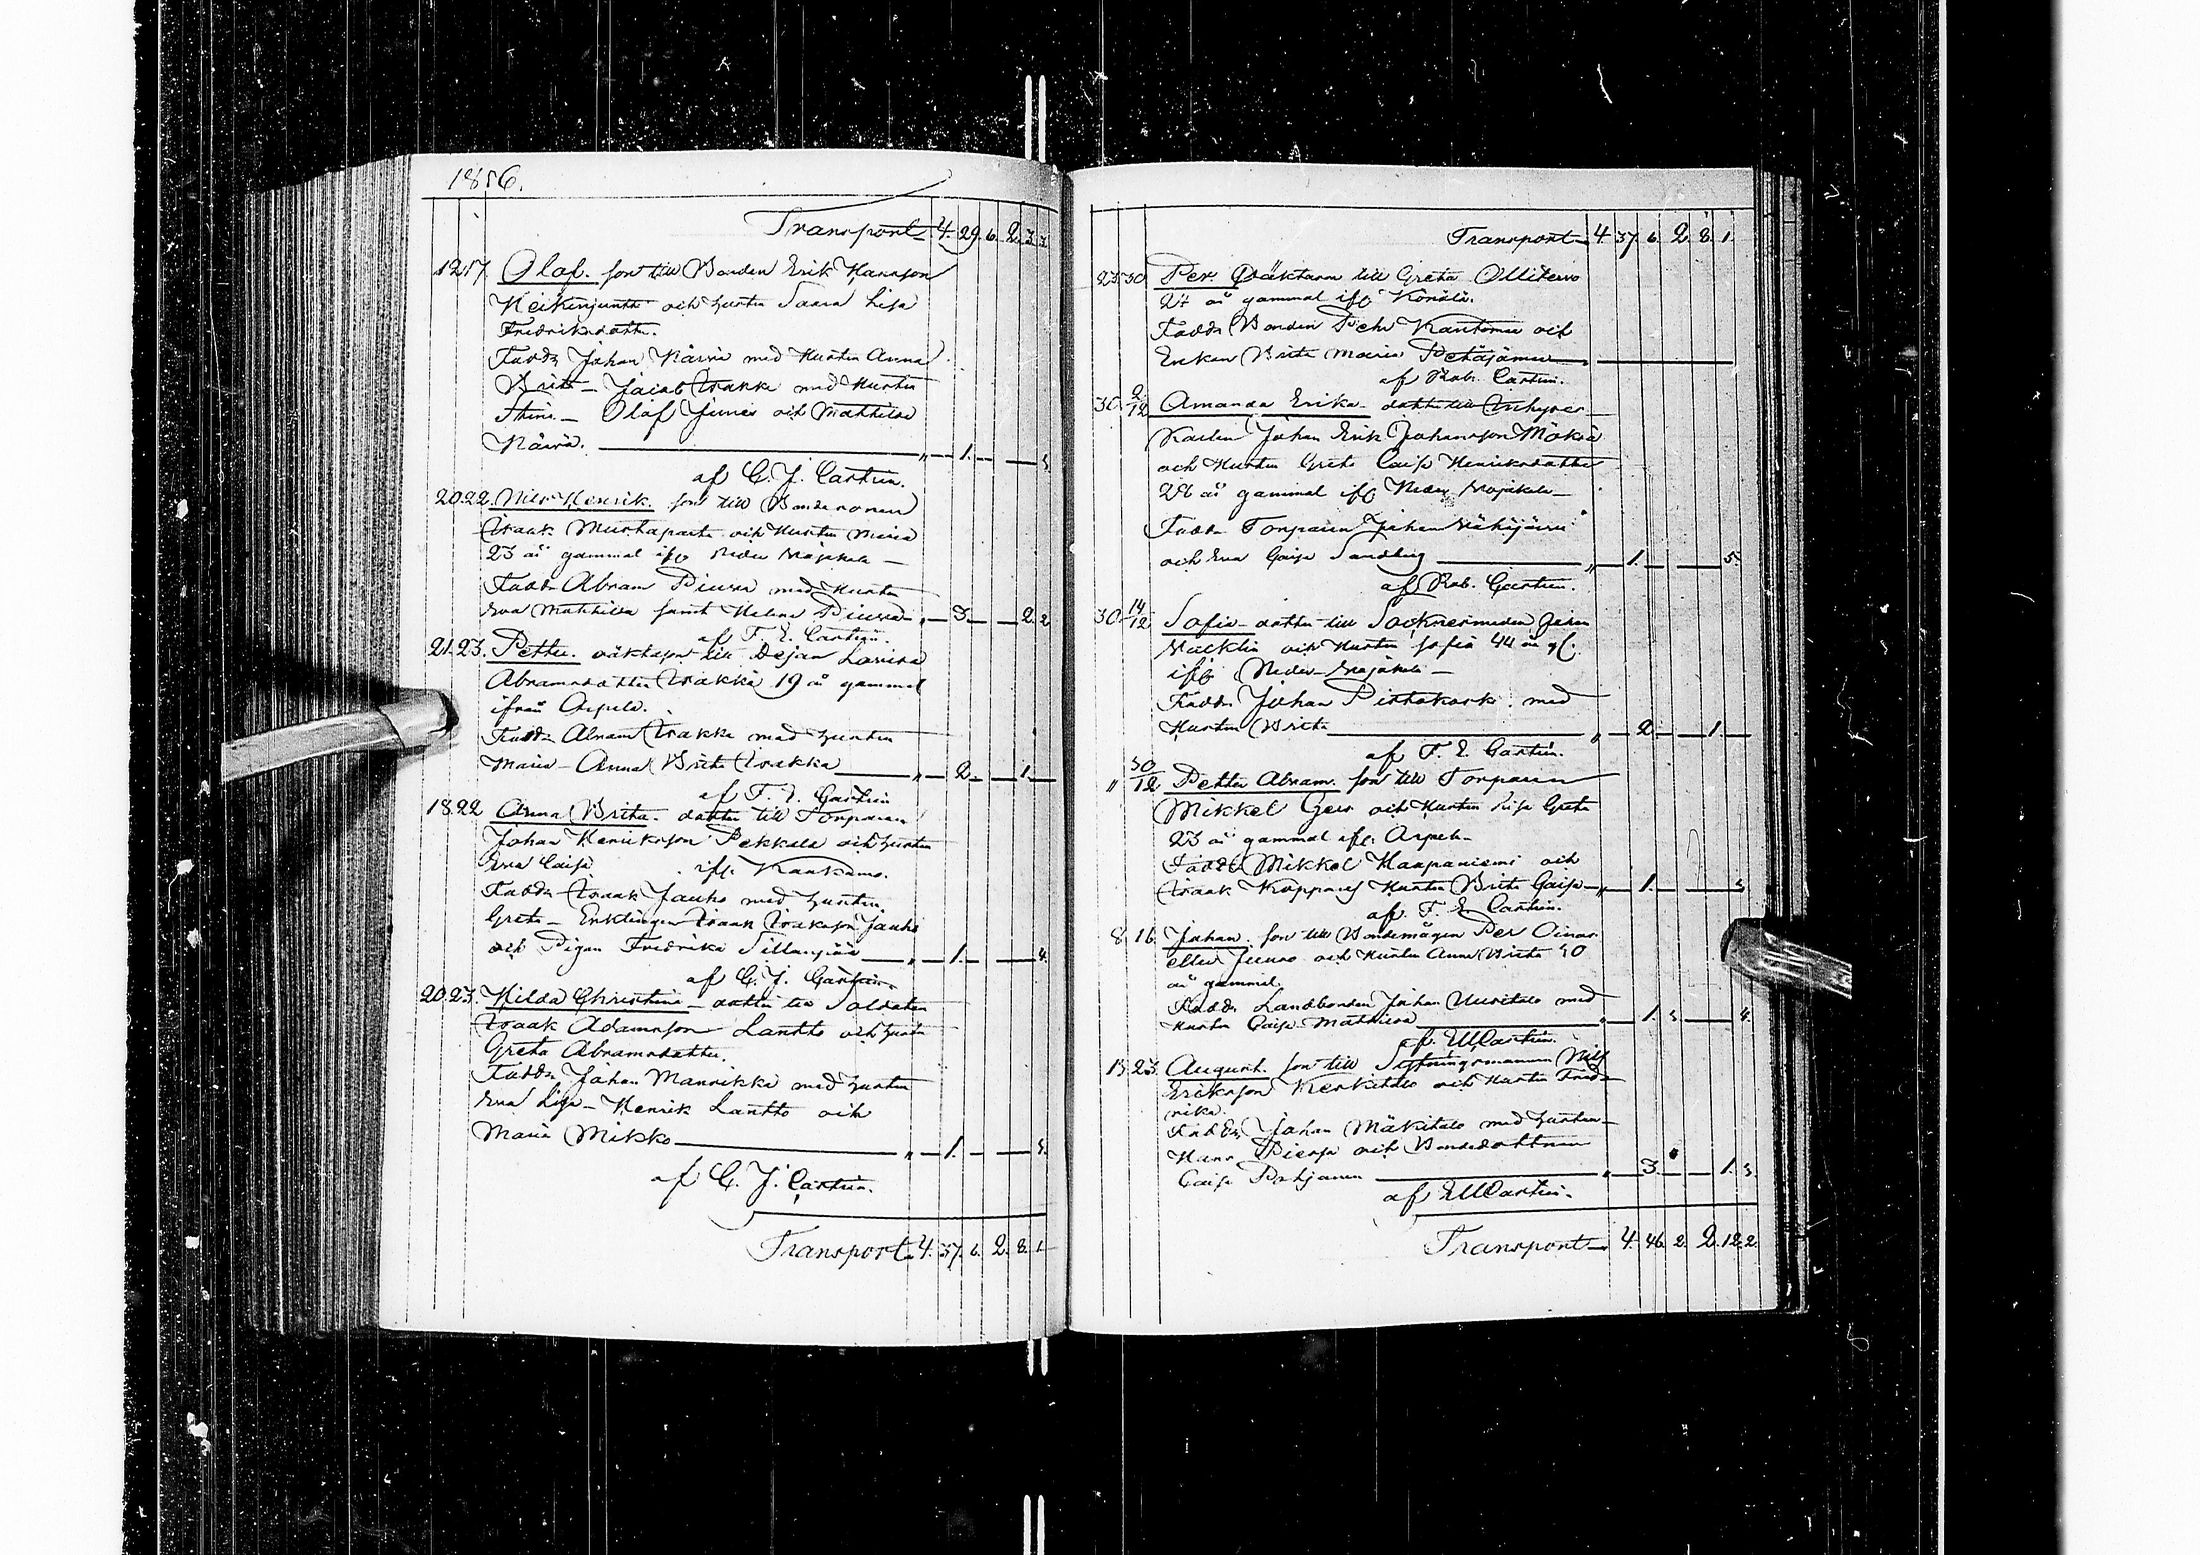 1856.
Transport 4. 29. 6. 2. 3. 3.
12. 17. Olof. son till Bonden Erik Hansson
Heikinjuntti och hustru Saara Lisa
Fredriksdotter.
Faddr Johan Närvä med Hustru Anna
Brita – Jacob Isakka med Hustru
Stina – Olof Junes och Mathilda
Närvä. " – 1. –
af C. J. Castrén.
20. 22. Nils Henrik. son till Bondesonen
Isaak Mustaparta och Hustru Maria
23 år gammal ifr Neder Wojakala –
Faddr Abram Piuva med Hustru
Eva Mathilda samt Helena Piuva " – 3. – – 2. 2
af F. E. Castrén.
21. 23. Petter. oäkta son till Dejan Lovisa
Abramsdotter Isakka 19 år gammal
ifrån Arpela.
Faddr Abram Isakka med hustru
Maria – Anna Brita Isakka " – 2. – – 1. –
af F. E. Castrén
18. 22 Anna Brita. dotter till Torparen
Johan Henriksson Pekkala och hustru
Eva Caisa ifr. Kaakamo.
Faddr Isaak Jauho med hustru
Greta – Enklingen Isaak Isaksson Jauho
och Pigan Fredrika Sillanpää " – 1. – – 4.
af C. J. Castrén.
20. 23. Hilda Christina – dotter till Soldaten
Isaak Adamsson Lantto och hustru
Greta Abramsdotter.
Faddr Johan Mannikko med hustru
Eva Lisa – Henrik Lantto och
Maria Mikko " – 1. –
af C. J. Castrén.
Transport 4. 37. 6. 2. 8. 1.
Transport 4. 37. 6. 2. 8. 1.
23. 30 Per. Oäkta son till Greta Ollitervo
27 år gammal ifr
Faddr Bonden Pehr och
Enkan Brita Maria Petäjämaa
af Rob. Castrén.
30. 2/12 Amanda Erika dotter till Inhyses
Karlen Johan Erik Johansson
och Hustru Greta Caisa Henriksdotter
26 år gammal ifr Neder Wojakala –
Faddr Torparen Johan
och Eva Caisa Sandberg " – 1. – – 5.
af Rob. Castrén.
30. 14/12 Sofia – dotter till Sockne
och Hustru Sofia 44 år gl.
ifr Neder Wojakala –
Faddr Johan med
Hustru Brita " – 2. – – 1. –
af F. E. Castrén.
" 30/12 Petter Abram. son till Torparen
Mikkel och Hustru Lisa Greta
23 år gammal ifr. Arpela
Faddr Mikkel Haapaniemi och
Isaak Hustru Brita Caisa – " – 1. –
af F. E. Castrén.
8. 16. Johan. son till Bondemågen Per Oinas
eller Juuso och Hustru Anna Brita 30
år gammal.
Faddr Landbonden Johan Uusitalo med
Hustru Caisa Mathilda " – 1. 3. – 4.
af EMCastrén.
15. 23. August. son till Nils
Eriksson Kerkitalo och Hustru Fred-
rika.
Faddr Johan Mäkitalo med hustru –
Hans och Bondedottren
Caisa Pohjanen " – 3. – – 1. 3.
af EMCastrén.
Transport 4. 46. 2. 2. 12. 2.